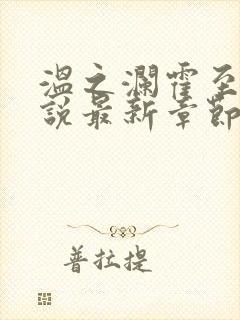 温之澜霍至
说最新章节
普拉提